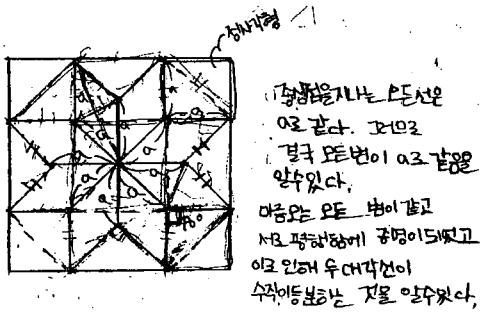 정사각형
지나는 모든 선은
a로 같다. 그러므로
결국 모든 변이 a로 같음을
알수있다.
마름모는 모든 변이 같고
서로 평행함에 증명이 되었고
이로 인해 두 대각선이
수직이등분하는 것을 알수있다.
a
a
a
a
a
a
a
a